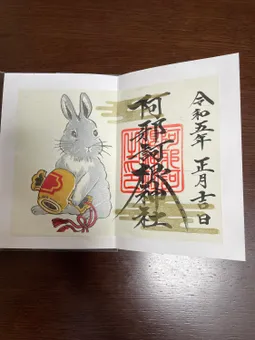 令和五年 正月吉日
阿邪訶根神社